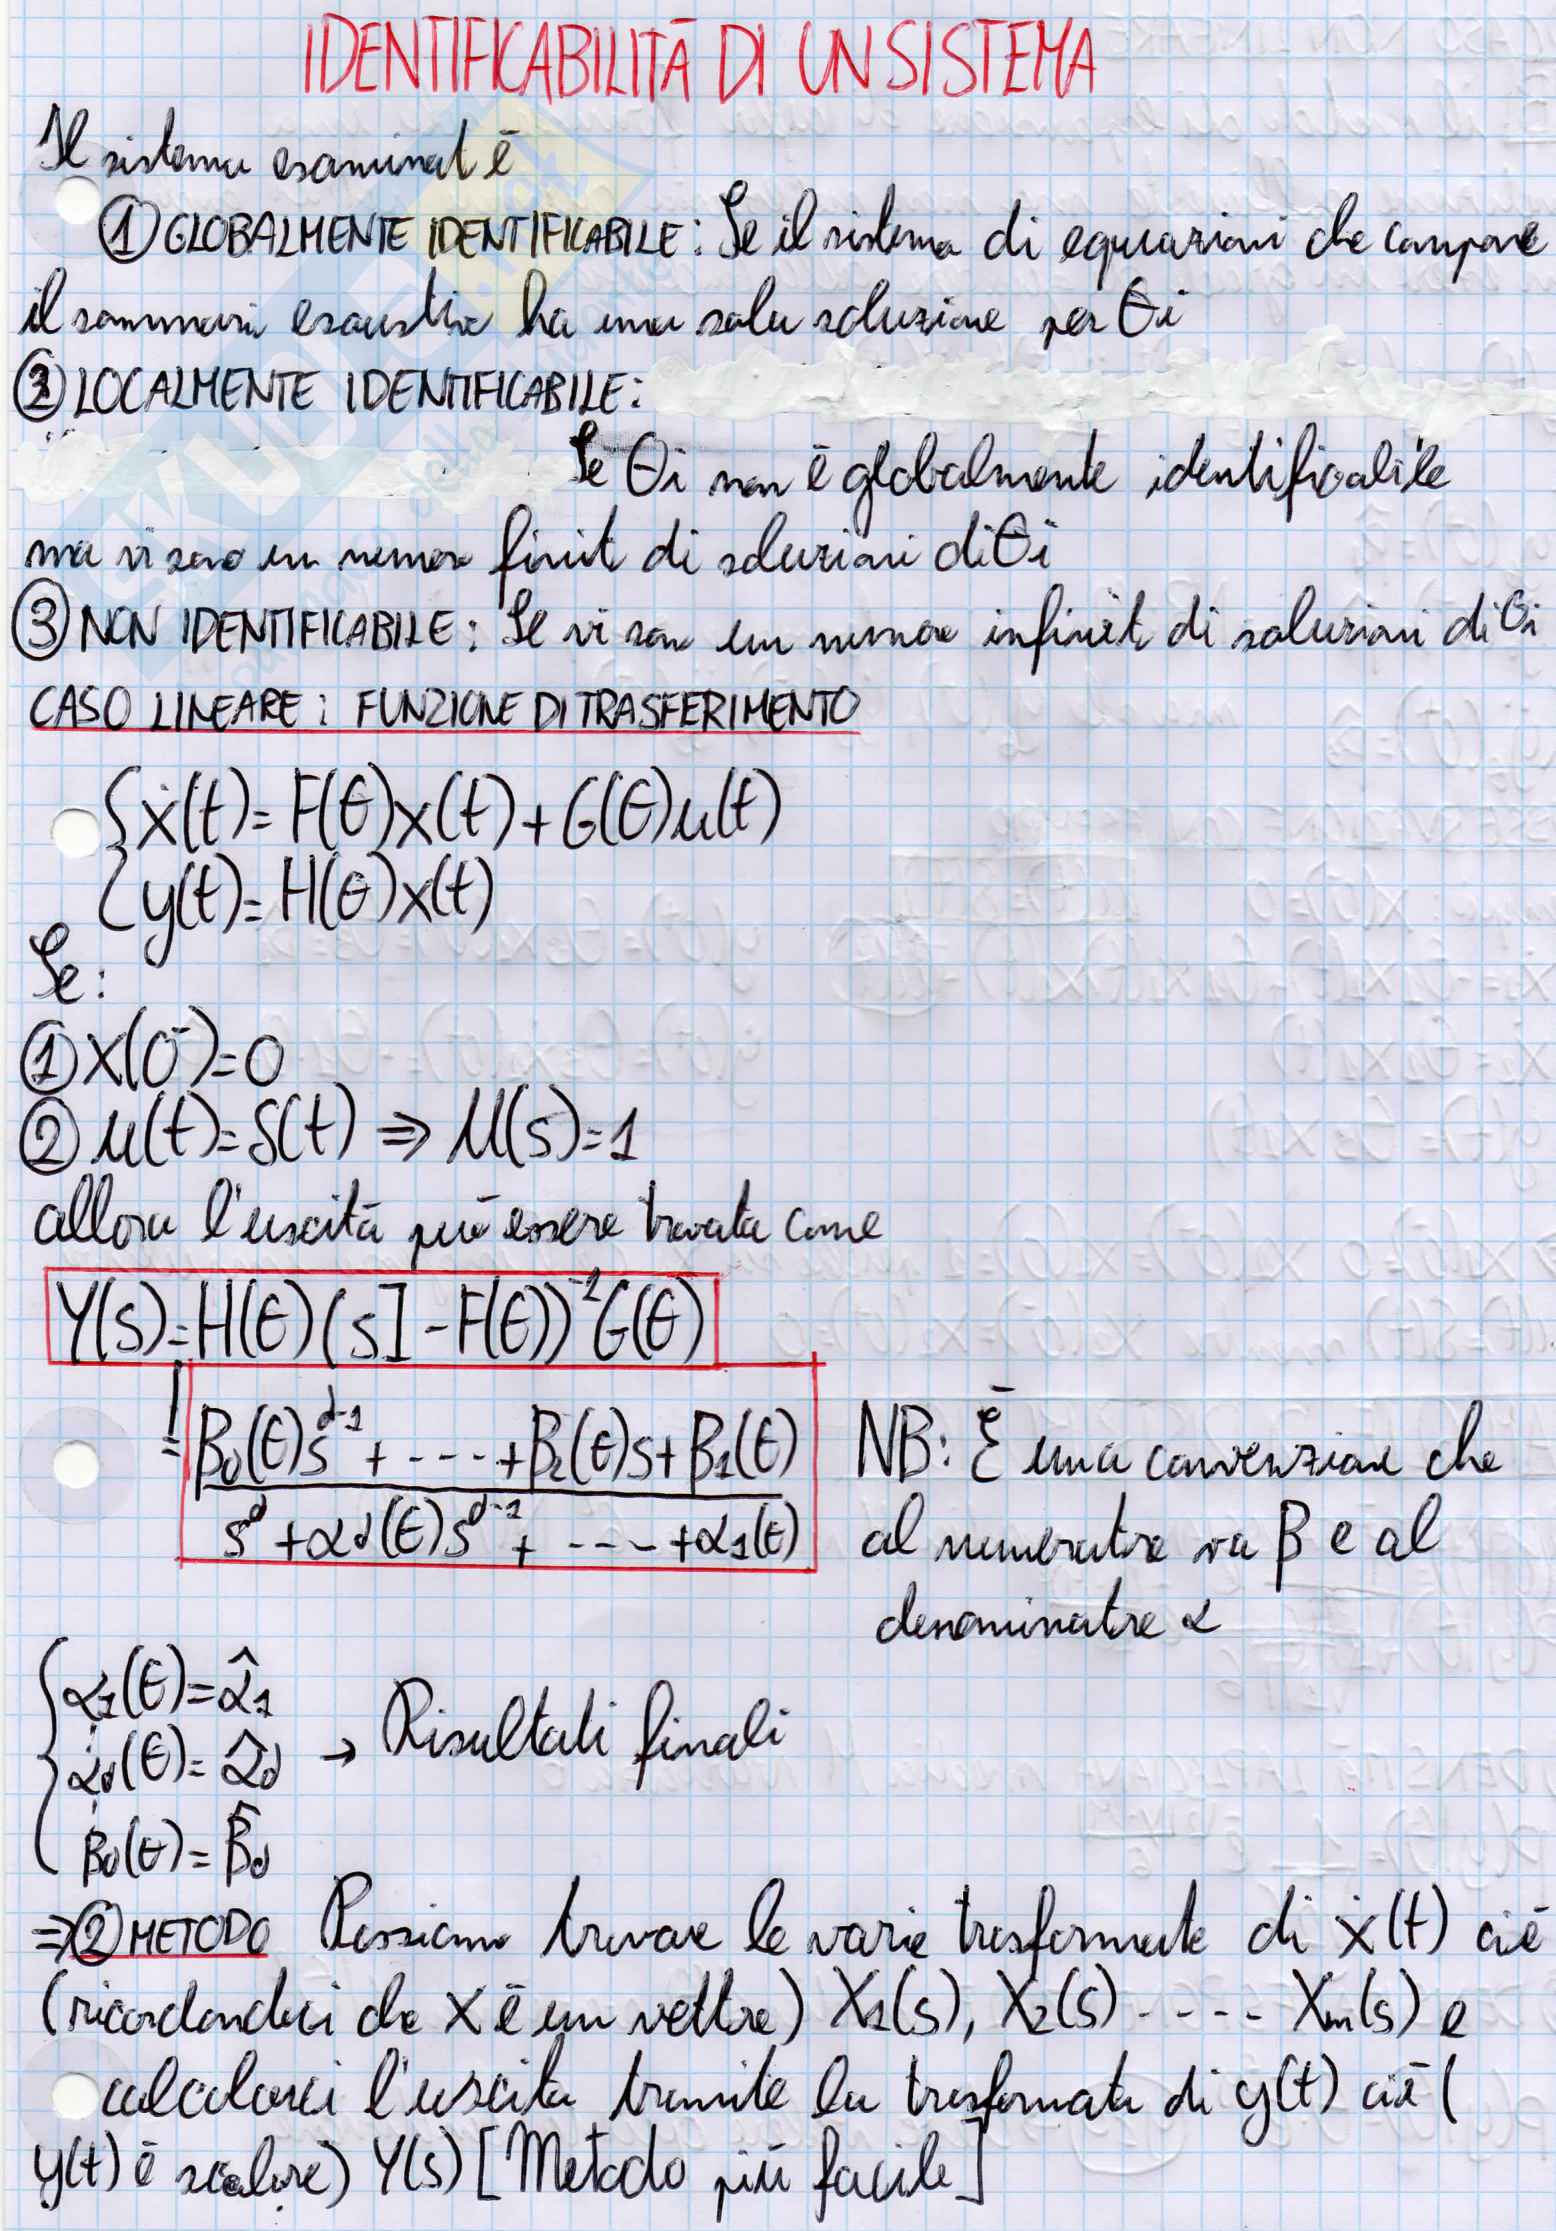 IDENTIFICABILITÀ DI UN SISTEMA
Il sistema esaminato è
① GLOBALMENTE IDENTIFICABILE: Se il sistema di equazioni che compone
il sommario esaustivo ha una sola soluzione per θi
② LOCALMENTE IDENTIFICABILE:
Se θi non è globalmente identificabile
ma vi sono un numero finito di soluzioni di θi
③ NON IDENTIFICABILE: Se vi sono un numero infinito di soluzioni di θi
CASO LINEARE: FUNZIONE DI TRASFERIMENTO
{ẋ(t)=F(θ)x(t)+G(θ)u(t)
y(t)=H(θ)x(t)
Se:
① X(0⁻)=0
② u(t)=δ(t) ⇒ U(s)=1
allora l'uscita può essere trovata come
Y(s)=H(θ)(sI-F(θ))⁻¹G(θ)
= βd(θ)s^d-1 + ---- + β2(θ)s + β1(θ)
s^d + αd(θ)s^d-1 + ---- + α1(θ)
NB: È una convenzione che
al numeratore va β e al
denominatore α
{α1(θ)=α̂1
αd(θ)=α̂d → Risultati finali
βd(θ)=β̂d
⇒② METODO Possiamo trovare le varie trasformate di ẋ(t) cioè
(ricordandoci che X è un vettore) X1(s), X2(s) ---- Xm(s) e
calcolarci l'uscita tramite la trasformata di y(t) cioè (
y(t) è scalare) Y(s) [Metodo più facile]